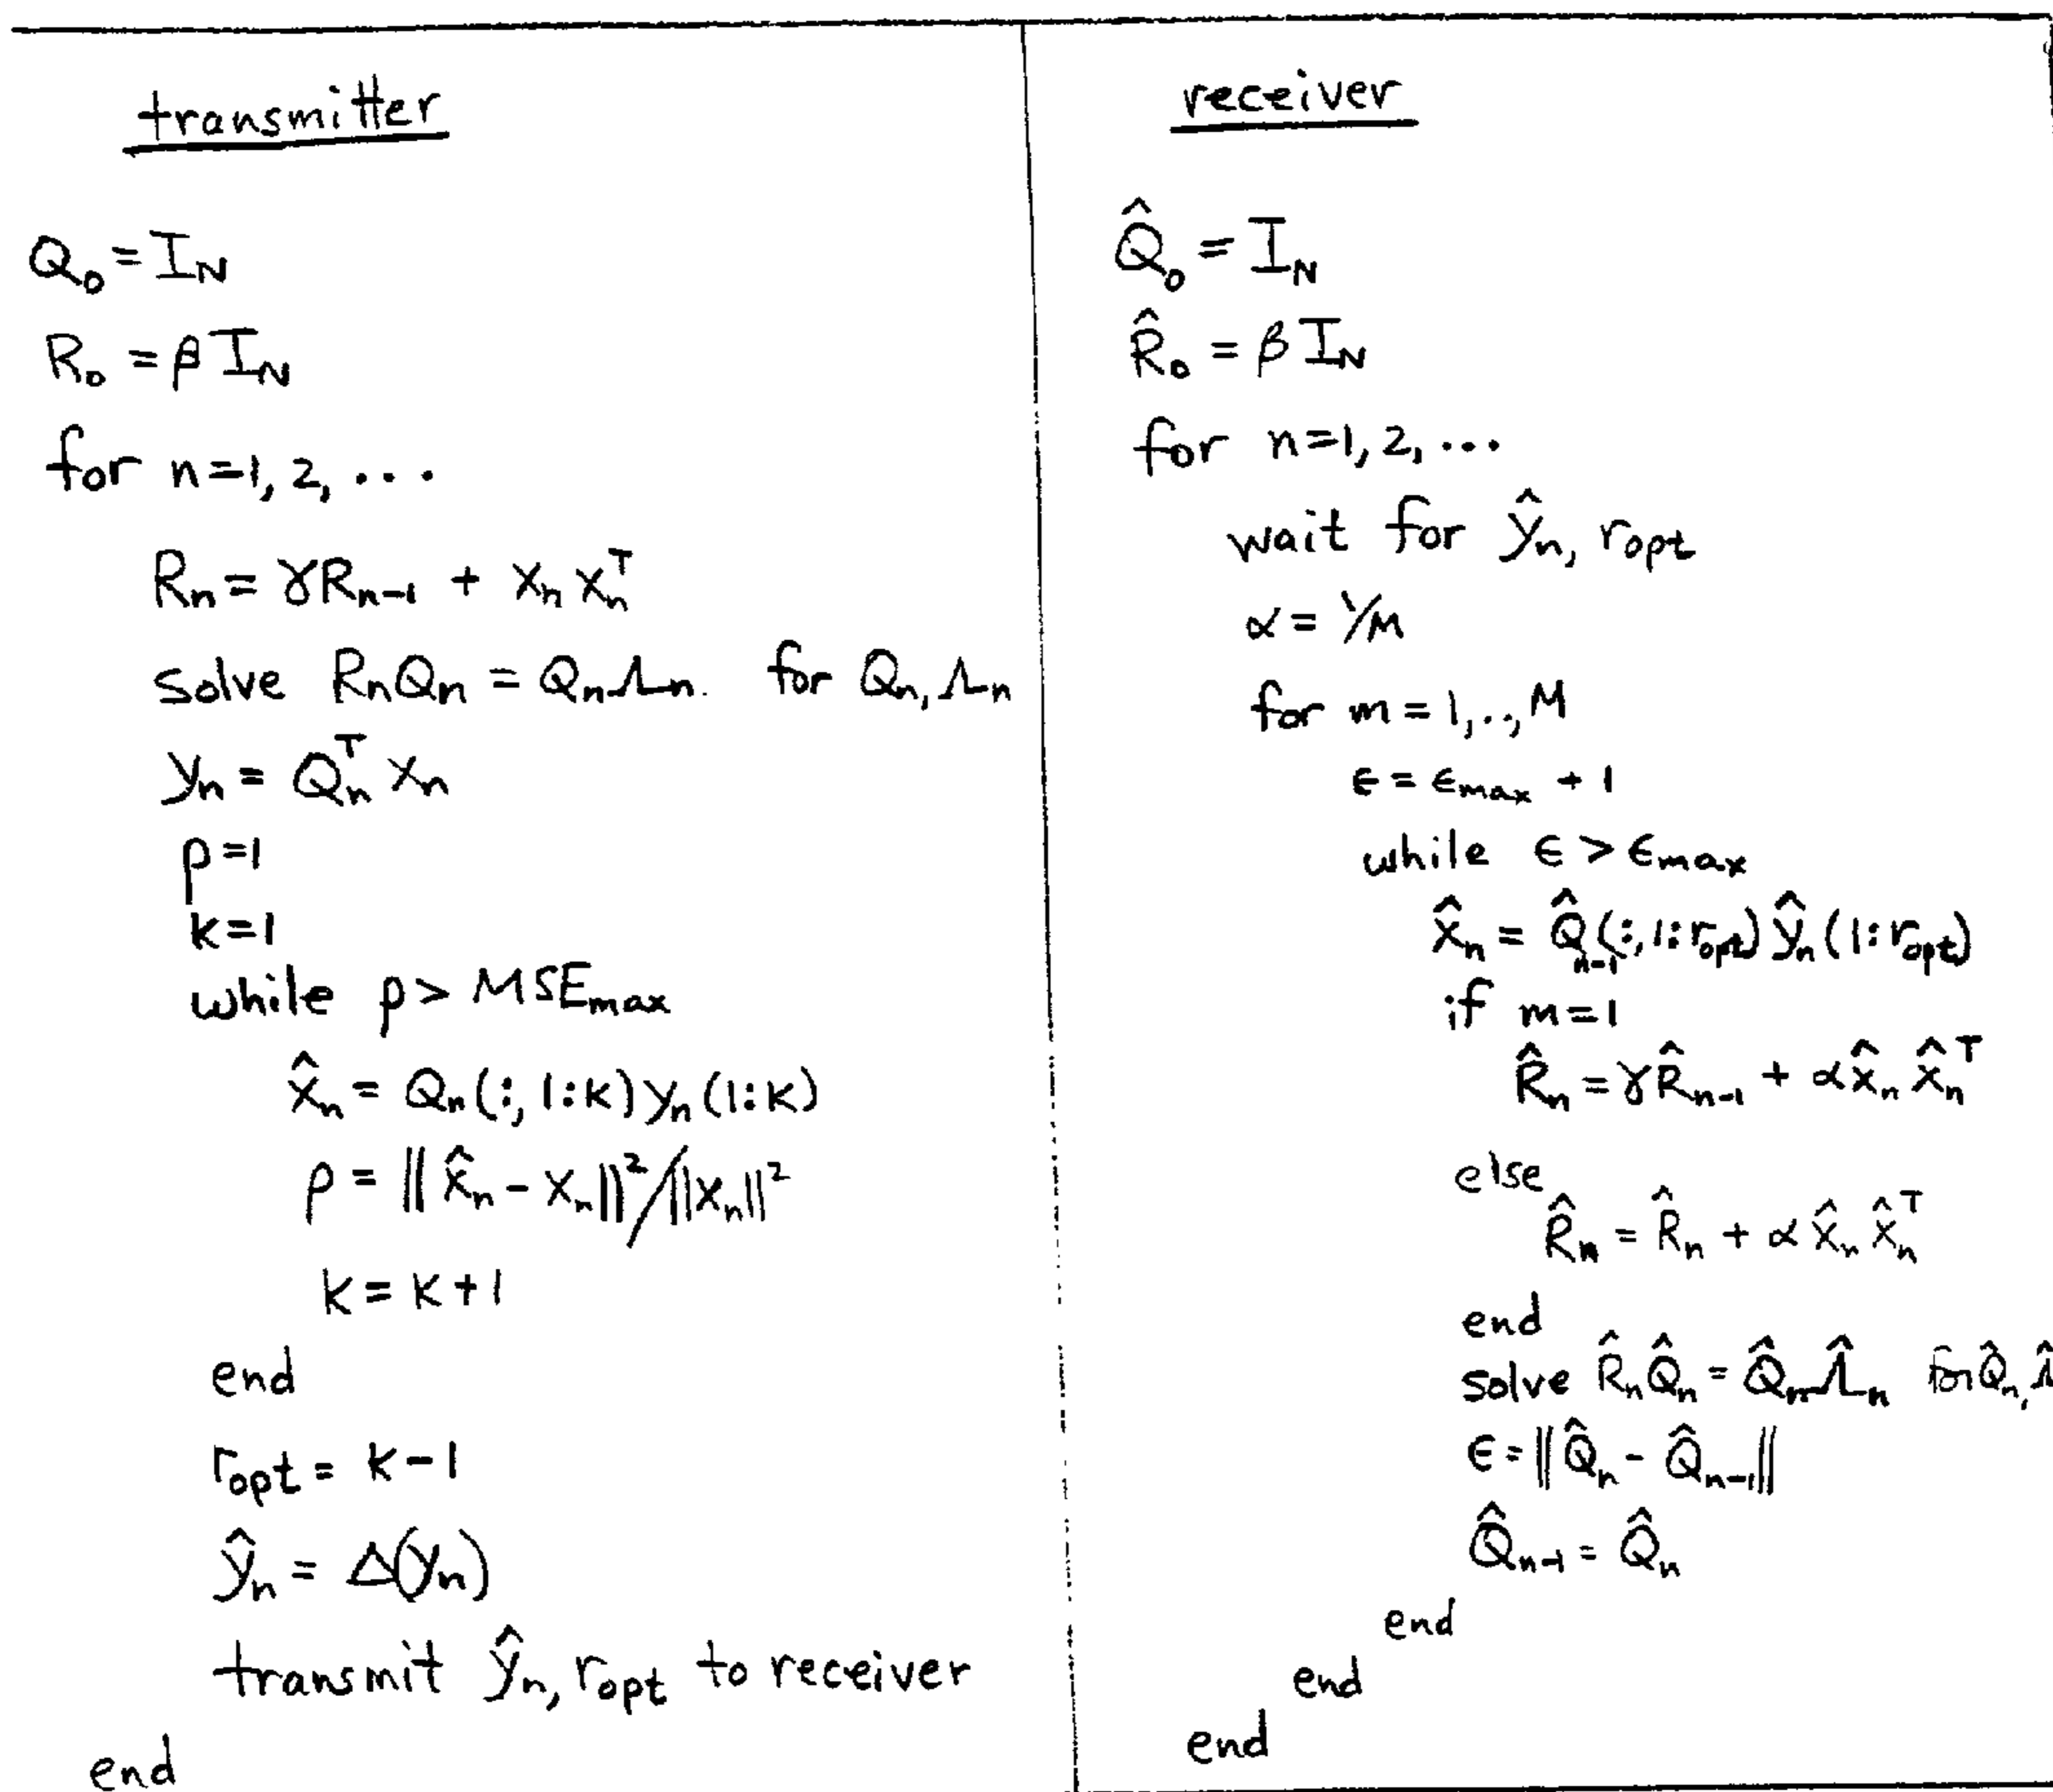 transmitter
Q₀ = I_N
R₀ = β I_N
for n=1, 2, ...
R_n = γR_{n-1} + x_n x_n^T
solve R_n Q_n = Q_n Λ_n. for Q_n, Λ_n
y_n = Q_n^T x_n
ρ=1
k=1
while ρ > MSE_max
x̂_n = Q_n(:, 1:k) y_n(1:k)
ρ = ||x̂_n - x_n||²/||x_n||²
k = k+1
end
r_opt = k-1
ŷ_n = Δ(y_n)
transmit ŷ_n, r_opt to receiver
end
receiver
Q̂₀ = I_N
R̂₀ = β I_N
for n=1, 2, ...
wait for ŷ_n, r_opt
α = 1/M
for m = 1,..,M
ε = ε_max + 1
while ε > ε_max
x̂_n = Q̂_{n-1}(:,1:r_opt) ŷ_n(1:r_opt)
if m=1
R̂_n = γR̂_{n-1} + α x̂_n x̂_n^T
else
R̂_n = R̂_n + α x̂_n x̂_n^T
end
solve R̂_n Q̂_n = Q̂_n Λ̂_n for Q̂_n, Λ̂
ε = ||Q̂_n - Q̂_{n-1}||
Q̂_{n-1} = Q̂_n
end
end
end